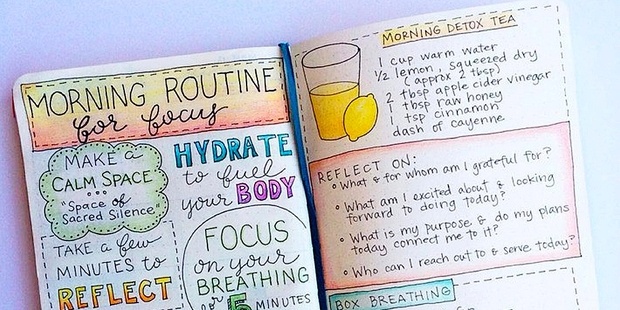 MORNING ROUTINE
for focus
MAKE a
CALM SPACE
"Space of
Sacred Silence"
HYDRATE
to fuel
your BODY
TAKE a few
MINUTES to
REFLECT
FOCUS
on your
BREATHING
for 5 MINUTES
MORNING DETOX TEA
1 cup warm water
1/2 lemon, squeezed dry
(approx 2 tbsp)
2 tbsp apple cider vinegar
1 tbsp raw honey
1 tsp cinnamon
dash of cayenne
REFLECT ON:
• What & for whom am I grateful for?
• What am I excited about & looking
forward to doing today?
• What is my purpose & do my plans
today connect me to it?
• Who can I reach out to & serve today?
BOX BREATHING